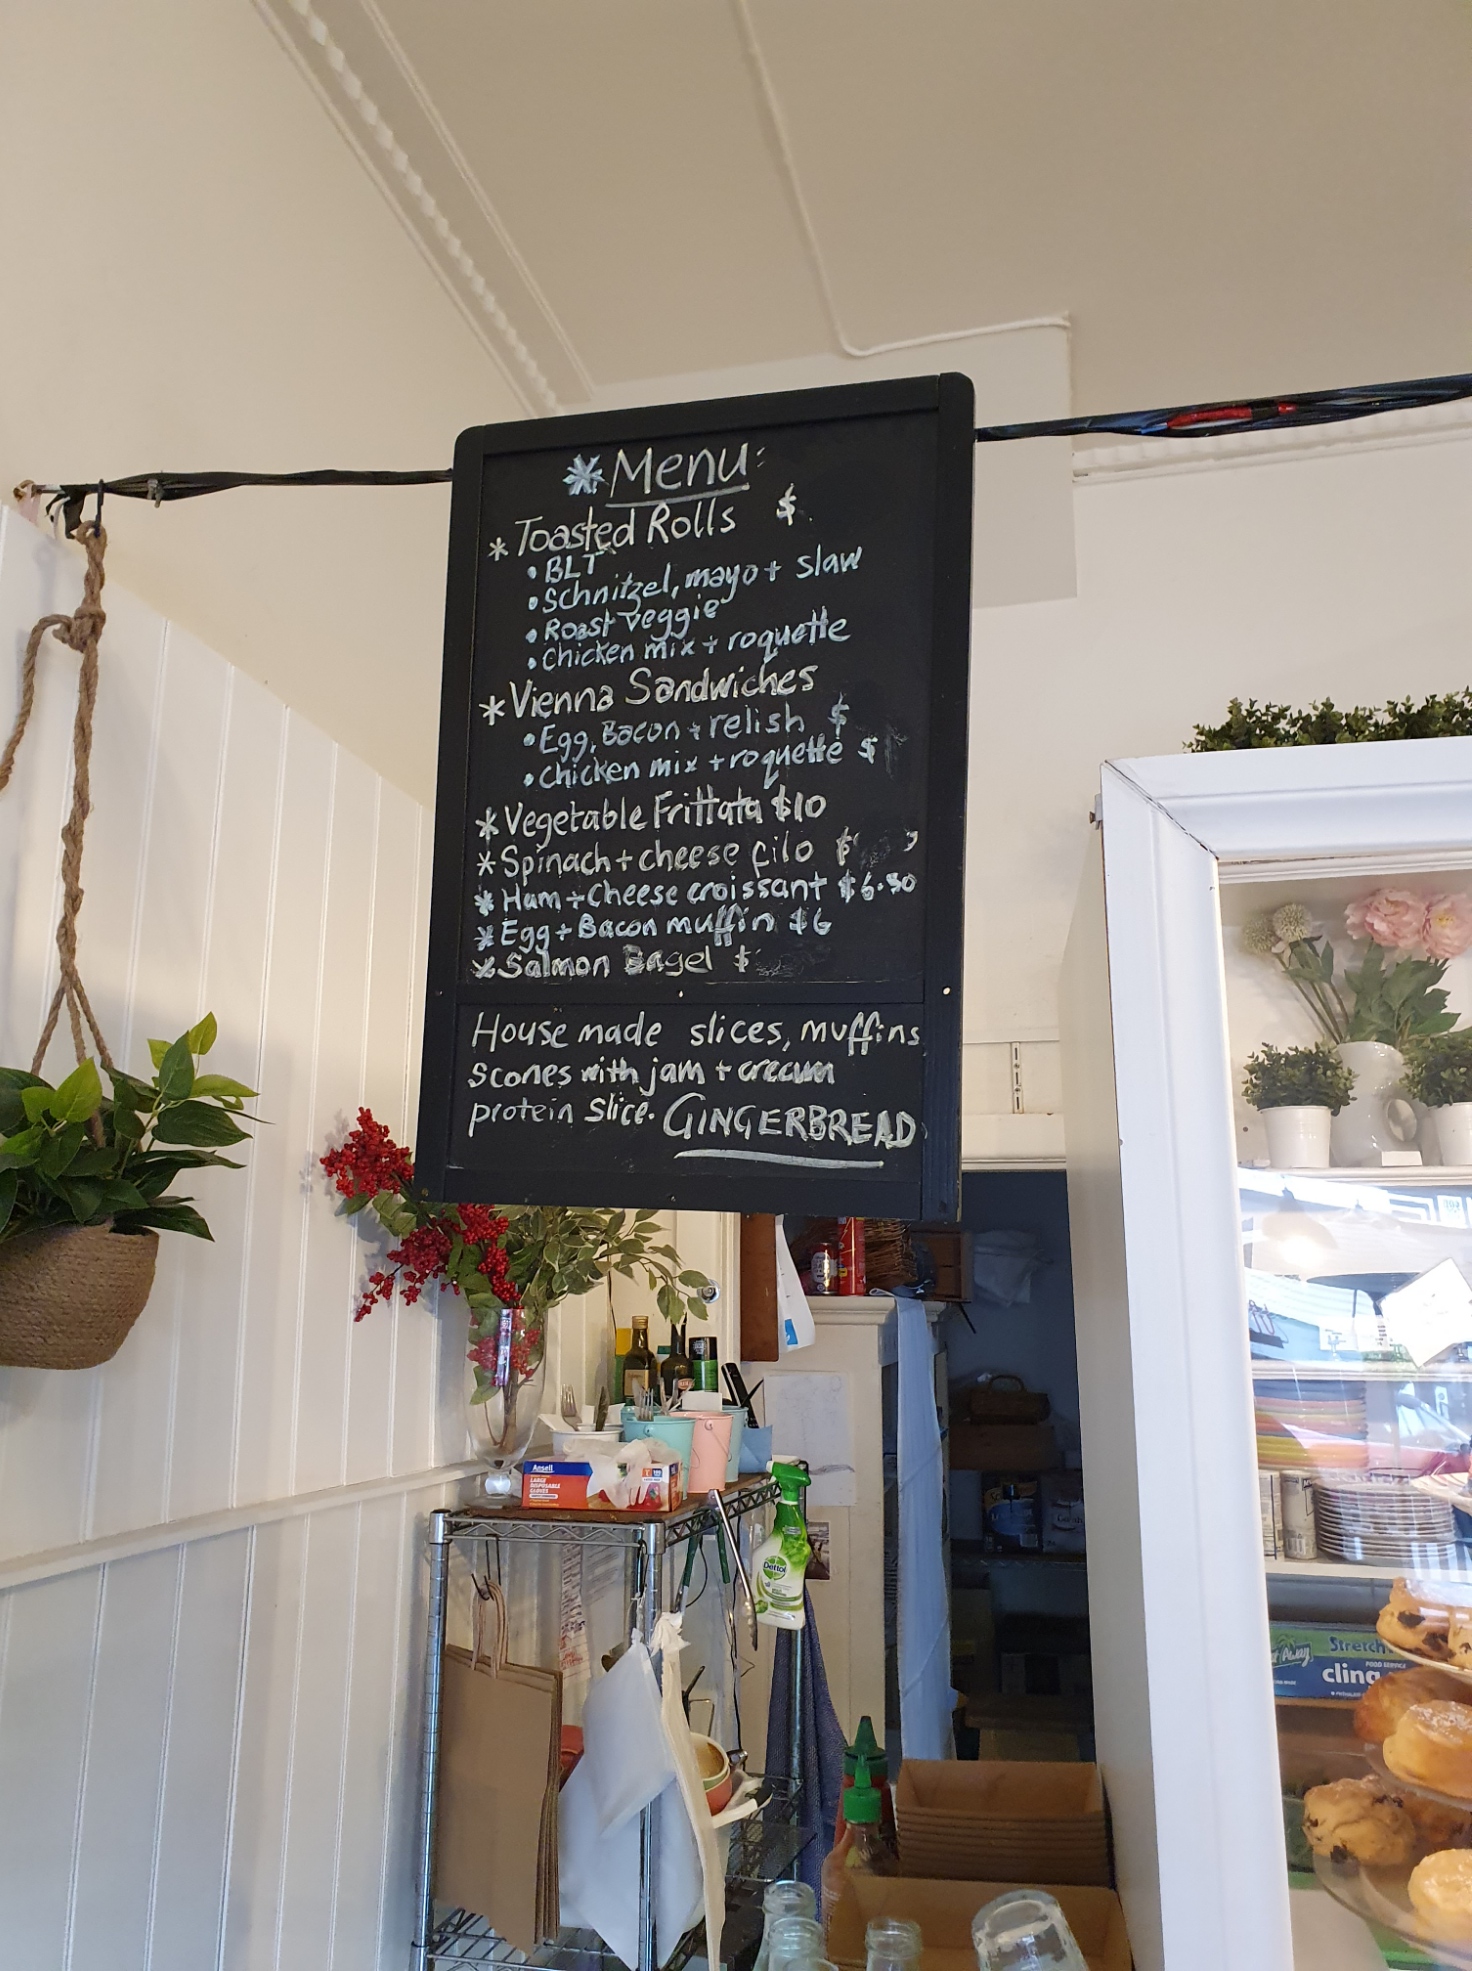 * Menu:
* Toasted Rolls $
• BLT
• Schnitzel, mayo + slaw
• Roast veggie
• Chicken mix + roquette
* Vienna Sandwiches
• Egg, Bacon + relish $
• Chicken mix + roquette $
* Vegetable Frittata $10
* Spinach + cheese filo $
* Ham + Cheese croissant $6.50
* Egg + Bacon muffin $6
* Salmon Bagel $
House made slices, muffins
scones with jam + cream
protein slice. GINGERBREAD
Ansell
LARGE
DISPOSABLE
GLOVES
Dettol
Away
Stretch
FOOD SERVICE
cling